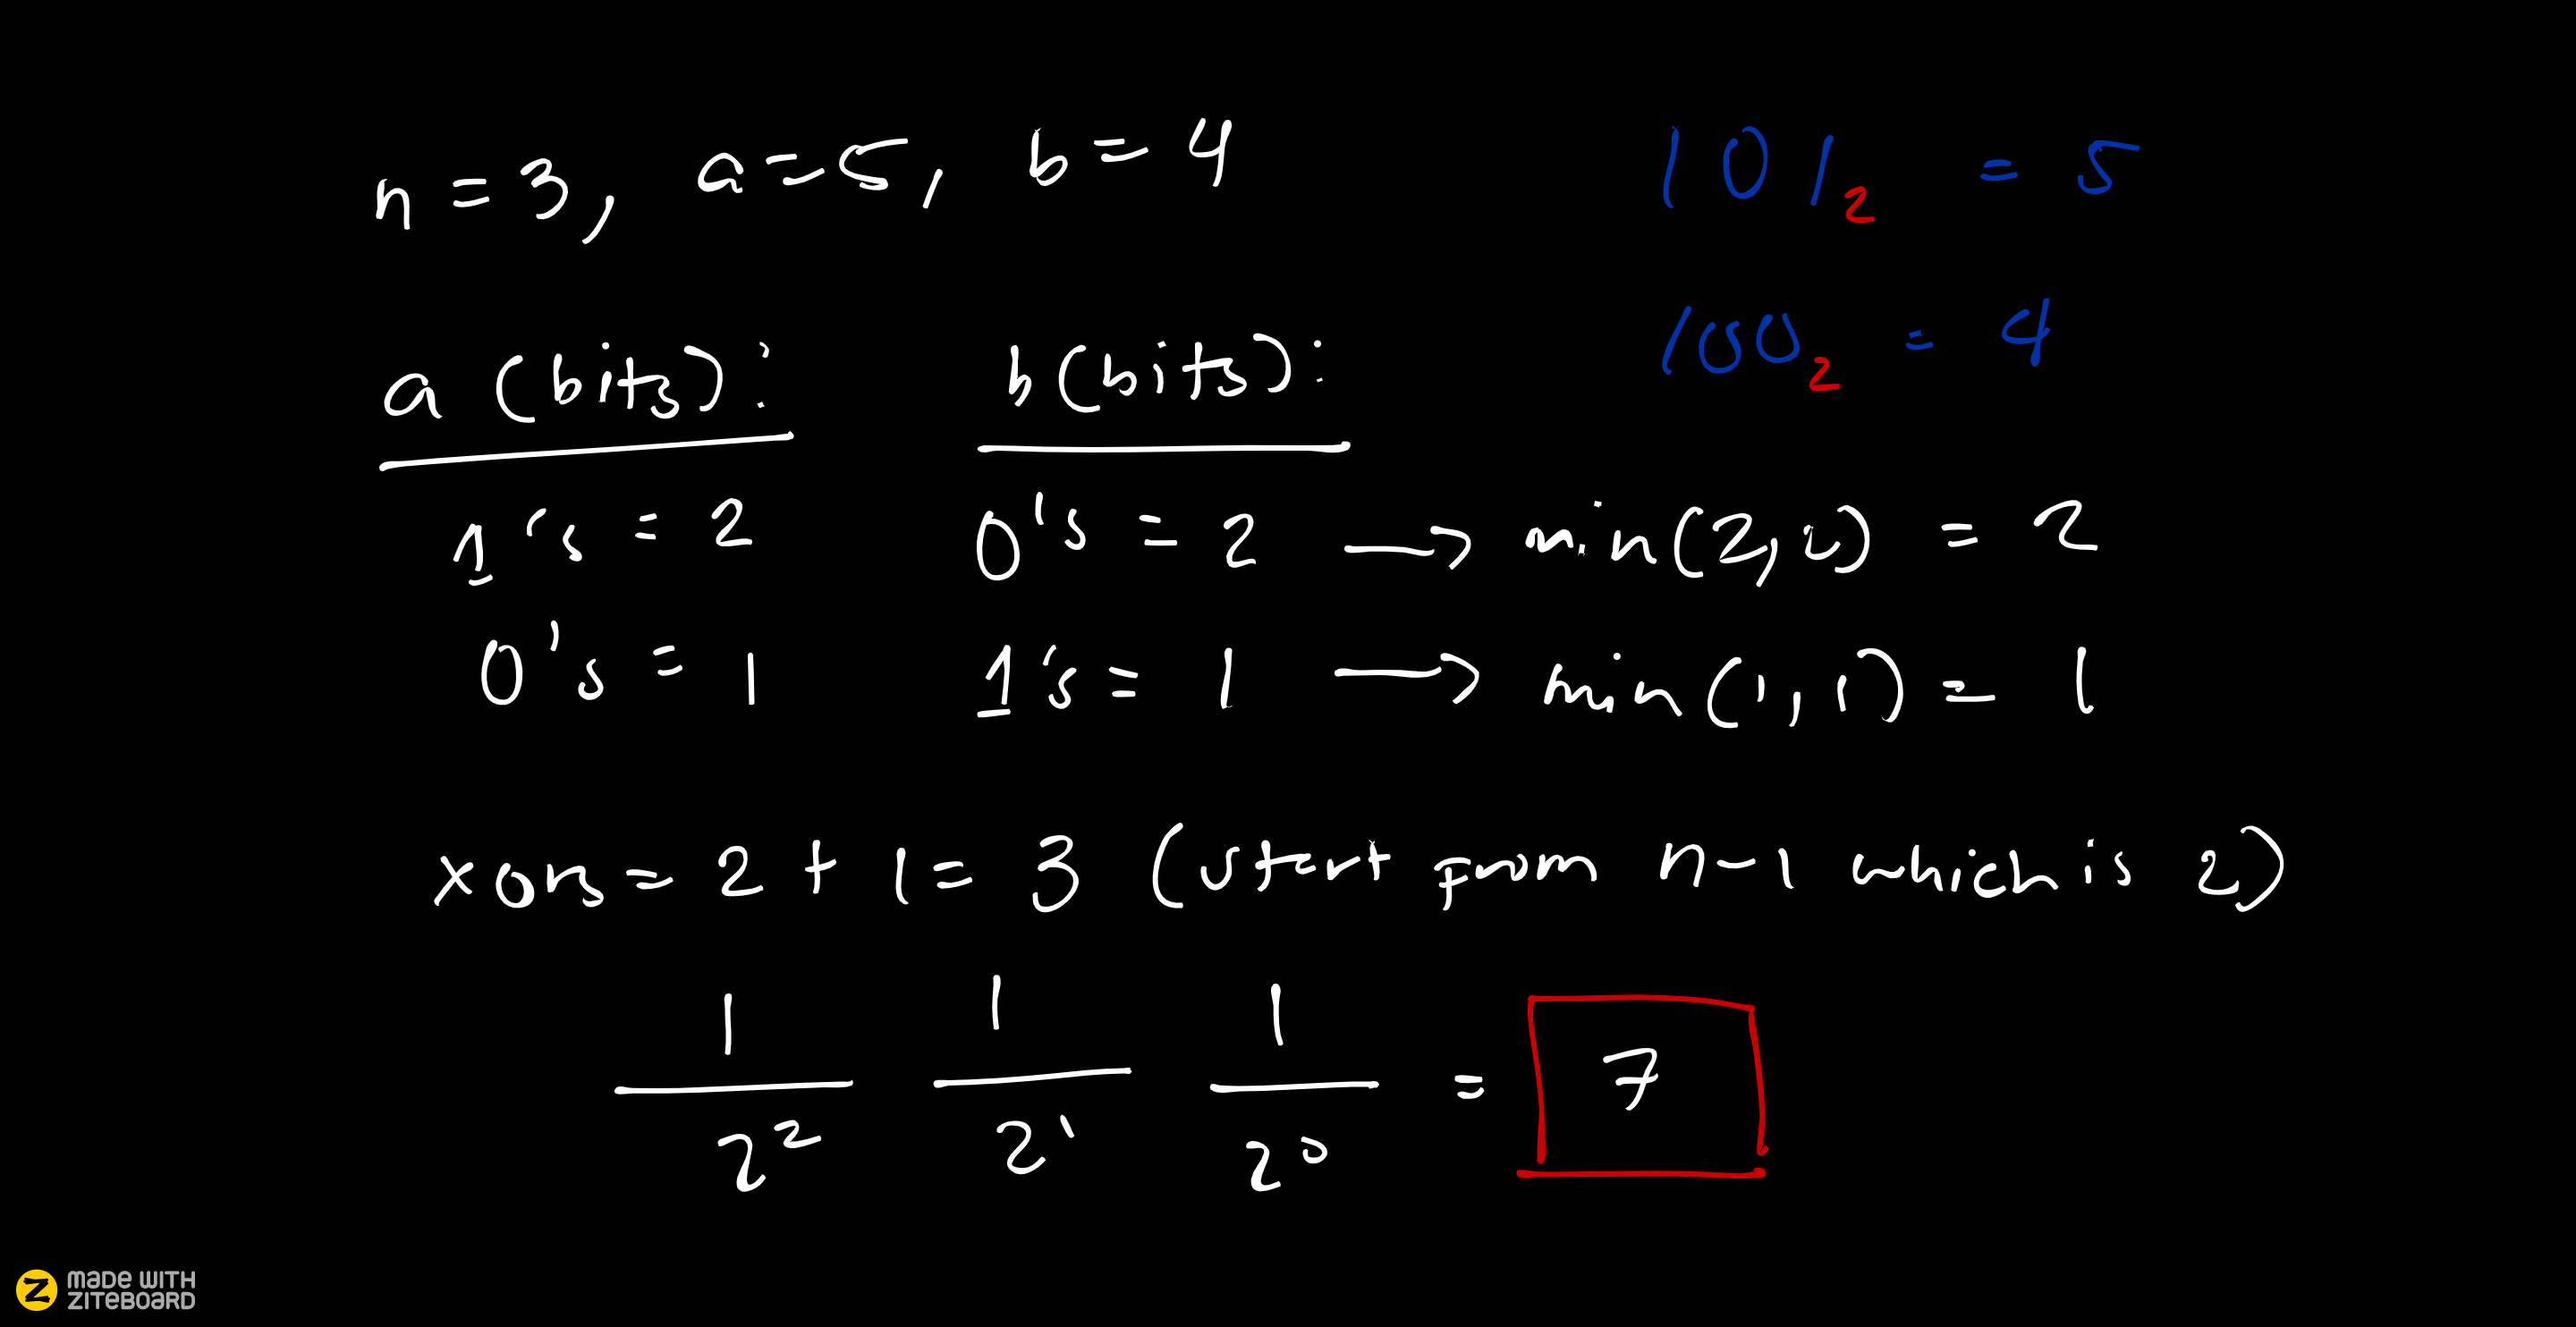 n = 3, a = 5, b = 4
101₂ = 5
100₂ = 4
a (bits): b(bits):
1's = 2 0's = 2 → min(2,2) = 2
0's = 1 1's = 1 → min(1,1) = 1
xors = 2 + 1 = 3 (start from n-1 which is 2)
1 1 1
2² 2¹ 2⁰ = 7
MADE WITH
ZITEBOARD